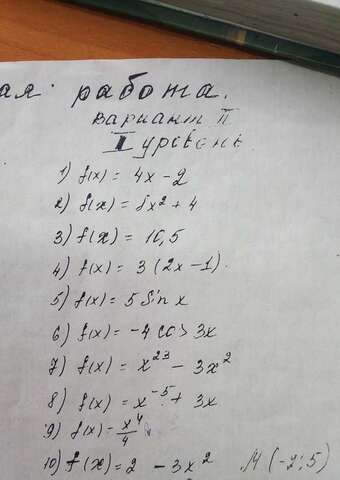 ая работа.
Вариант II
I уровень
1) f(x) = 4x - 2
2) f(x) = x² + 4
3) f(x) = 10,5
4) f(x) = 3(2x - 1).
5) f(x) = 5 Sin x
6) f(x) = -4 cos 3x
7) f(x) = x²³ - 3x²
8) f(x) = x⁻⁵ + 3x
9) f(x) = x⁴/4
10) f(x) = 2 - 3x² M(-2; 5)